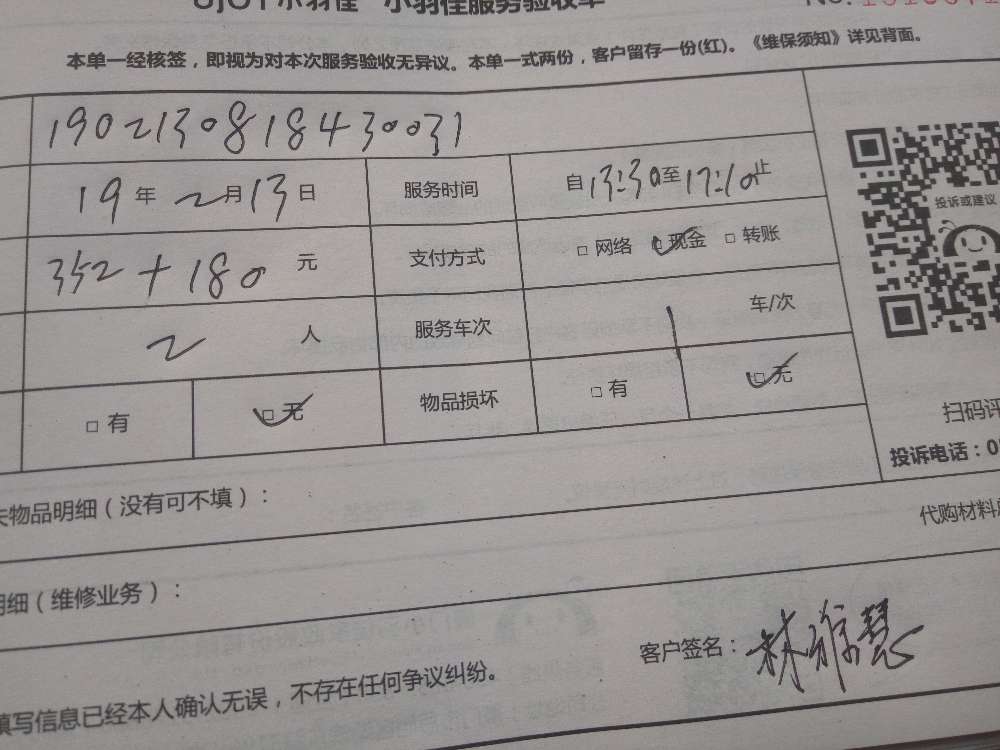 小羽佳服务验收单
本单一经核签，即视为对本次服务验收无异议。本单一式两份，客户留存一份(红)。《维保须知》详见背面。
1902130818430031
19年2月13日 服务时间 自13:30至17:10止
352+180元 支付方式 □网络 □现金 □转账
投诉或建议
2人 服务车次 1车/次
□有 □无 物品损坏 □有 □无
扫码评
投诉电话：0
失物品明细（没有可不填）：
代购材料
明细（维修业务）：
客户签名：林雅慧
填写信息已经本人确认无误，不存在任何争议纠纷。